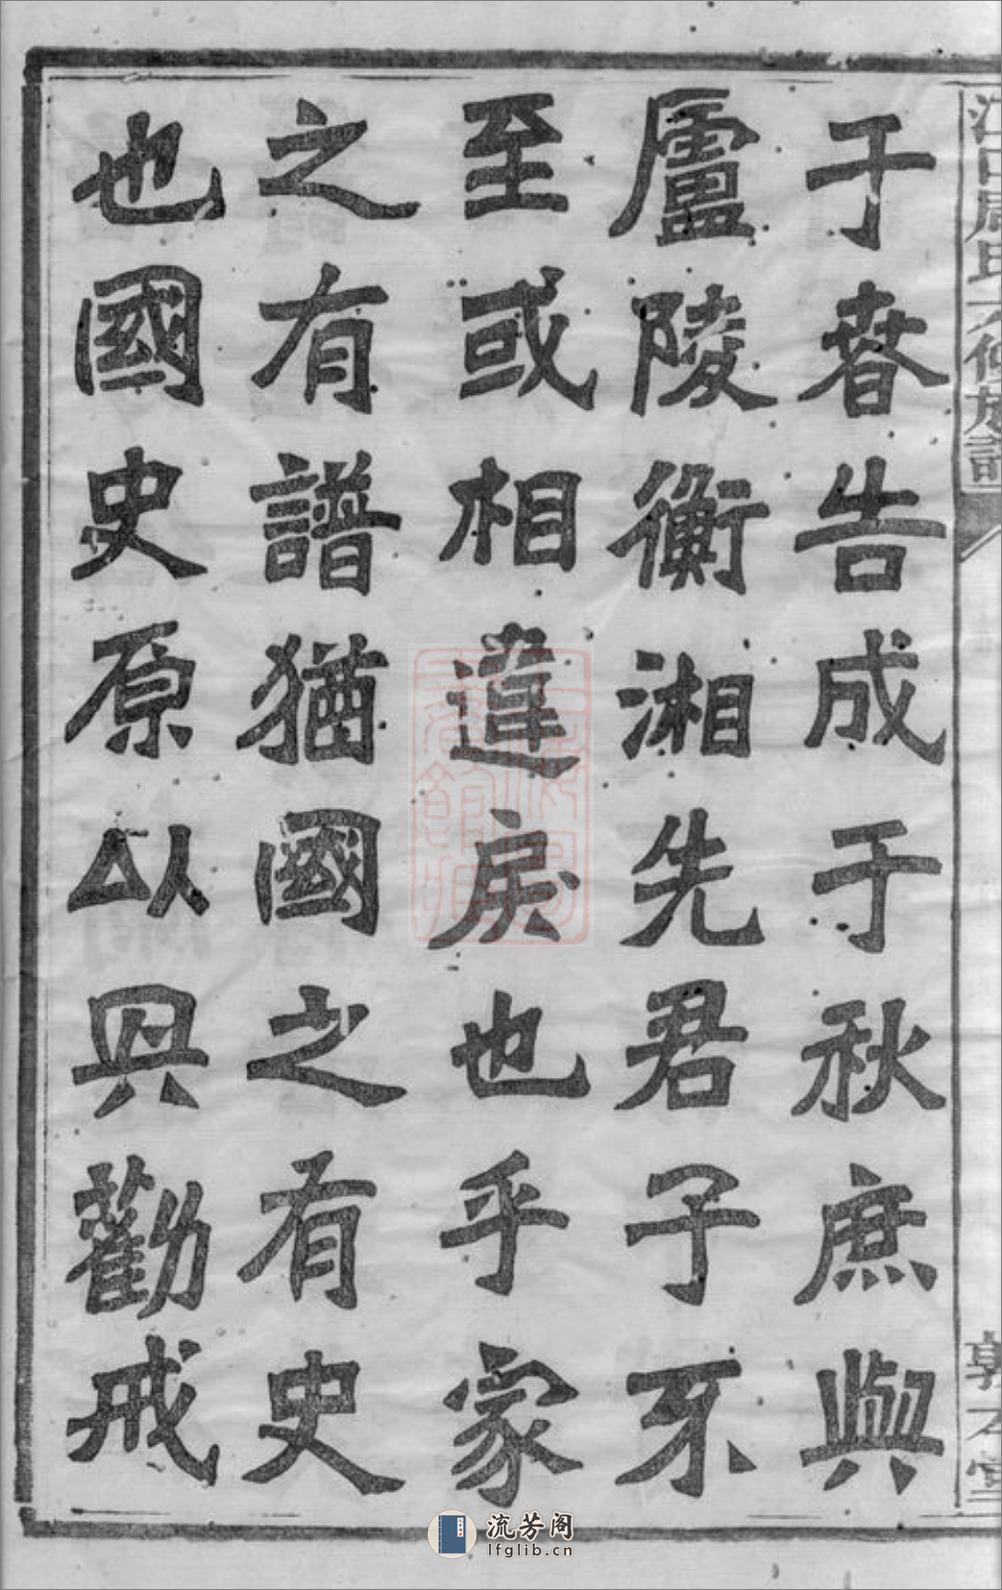 于春告成于秋庶與
廬陵衡湘先君子不
至或相違戾也乎家
之有譜猶國之有史
也國史原以具勸戒
流芳阁
lfglib.cn